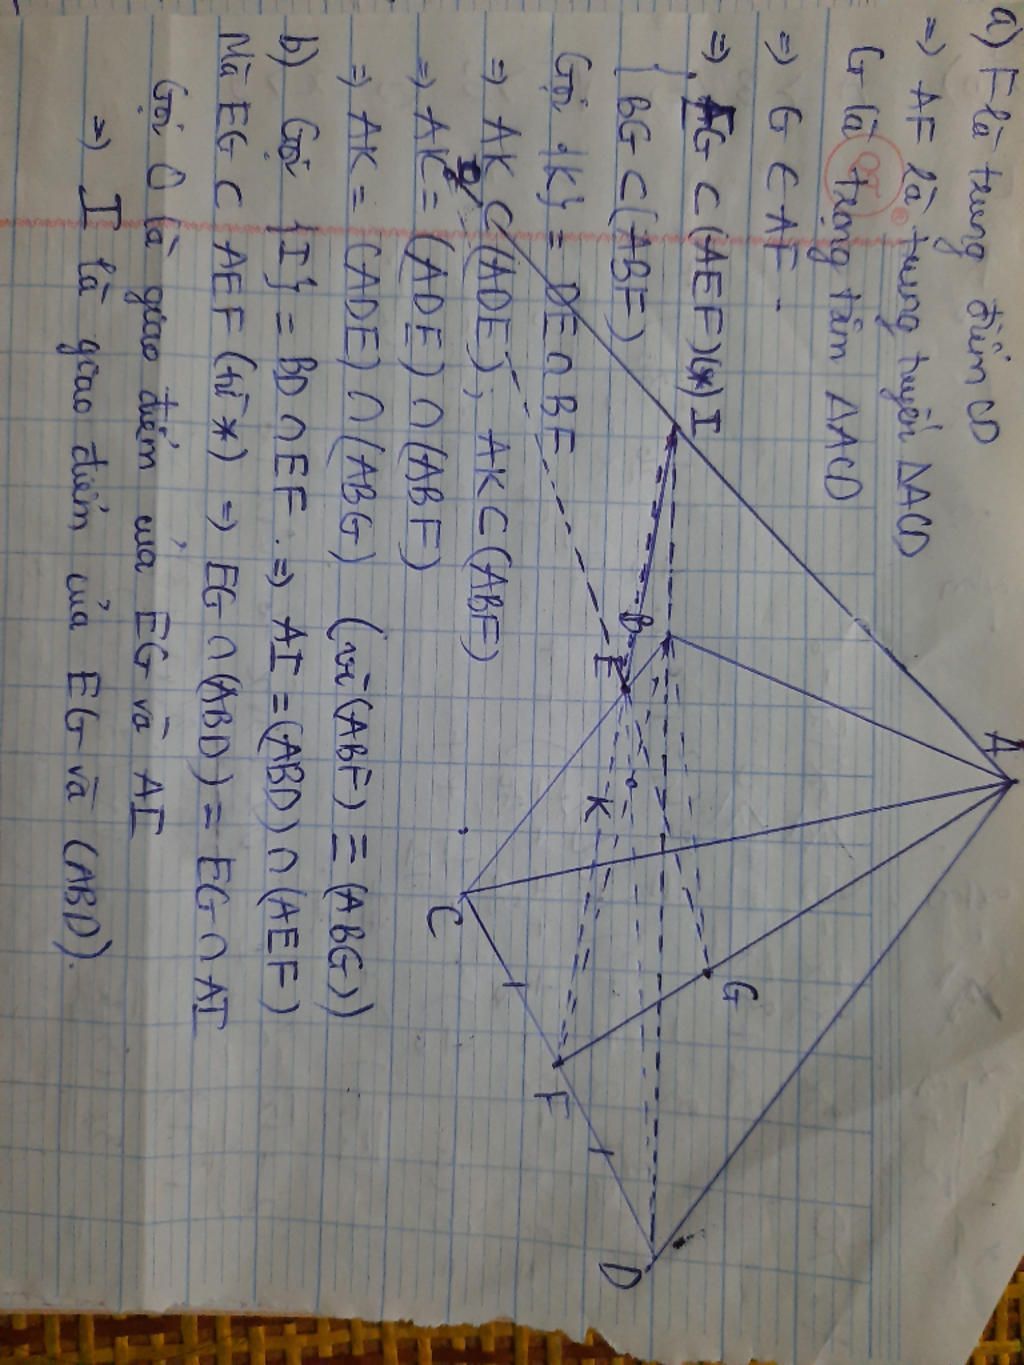 a) F là trung điểm CD
=> AF là trung tuyến ΔACD
G là trọng tâm ΔACD
=> G ∈ AF.
=> { AG ⊂ (AEF) (*)
BG ⊂ (ABF)
Gọi {K} = DE ∩ BF
=> AK ⊂ (ADE), AK ⊂ (ABF)
=> AK = (ADE) ∩ (ABF)
=> AK = (ADE) ∩ (ABG) (vì (ABF) ≡ (ABG))
b) Gọi {I} = BD ∩ EF. => AI = (ABD) ∩ (AEF)
Mà EG ⊂ AEF (từ *) => EG ∩ (ABD) = EG ∩ AI
Gọi O là giao điểm của EG và AI
=> I là giao điểm của EG và (ABD).
A
I
B
E
K
G
C
F
D